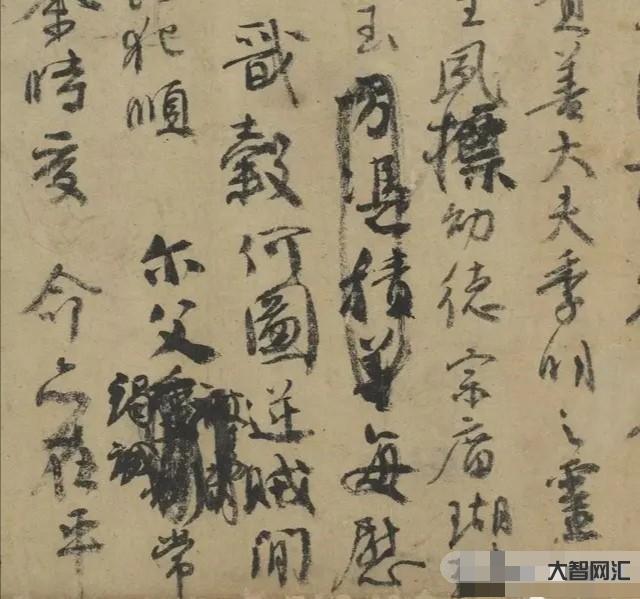 善大夫季明之靈
夙標幼德宗廟瑚
玉方憑積善每慰
戩穀何圖逆賊間
犯順尔父竭誠常
余時受命亦在平
大智网汇